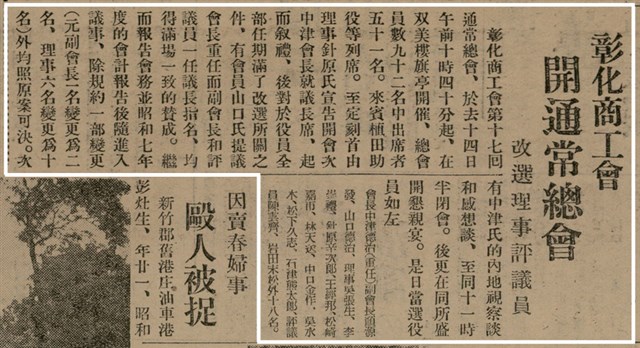 彰化商工會
開通常總會
改選理事評議員
彰化商工會第十七回
通常總會、於去十四日
午前十時四十分起、在
双美樓旗亭開催、總會
員數九十二名中出席者
五十一名。來賓植田助
役等列席。至定刻首由
理事針原氏宣告開會次
中津會長就議長席、起
而叙禮、後對於役員全
部任期滿了改選所關之
件、有會員山口氏提議
會長重任而副會長和評
議員一任議長指名、均
得滿場一致的贊成。繼
而報告會務並昭和七年
度的會計報告後隨進入
議事、除規約一部變更
(元副會長一名變更爲二
名、理事六名變更爲十
名)外均照原案可決。次
有中津氏的內地視察談
和感想談、至同十一時
半閉會。後更在同所盛
開懇親宴。是日當選役
員如左
會長中津德治(重任)副會長
發、山口德治、理事吳張生、李
崇禮、針原幸次郎、王廊邦、松崎
嘉市、林天送、中口金作、吳水
木、松下久志、石津熊太郎、評議
員陳丟齊、岩田末松外十八名。
因賣春婦事
毆人被捉
新竹郡舊港庄油車港
彭灶生、年廿一、昭和